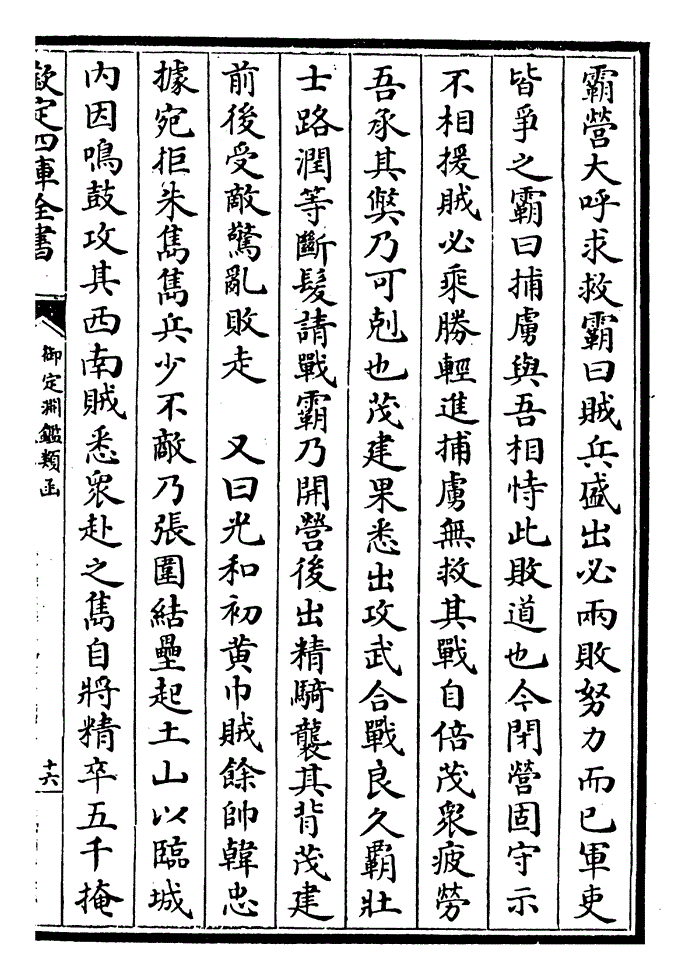 霸營大呼求救霸曰賊兵盛出必兩敗努力而已軍吏
皆爭之霸曰捕虜與吾相恃此敗道也今閉營固守示
不相援賊必乘勝輕進捕虜無救其戰自倍茂衆疲勞
吾承其獘乃可剋也茂建果悉出攻武合戰良久霸壯
士路潤等斷髮請戰霸乃開營後出精騎襲其背茂建
前後受敵驚亂敗走　又曰光和初黄巾賊餘帥韓忠
據宛拒朱儁儁兵少不敵乃張圍結壘起土山以臨城
内因鳴鼓攻其西南賊悉衆赴之儁自將精卒五千掩
欽定四庫全書
御定淵鑑類函
十六